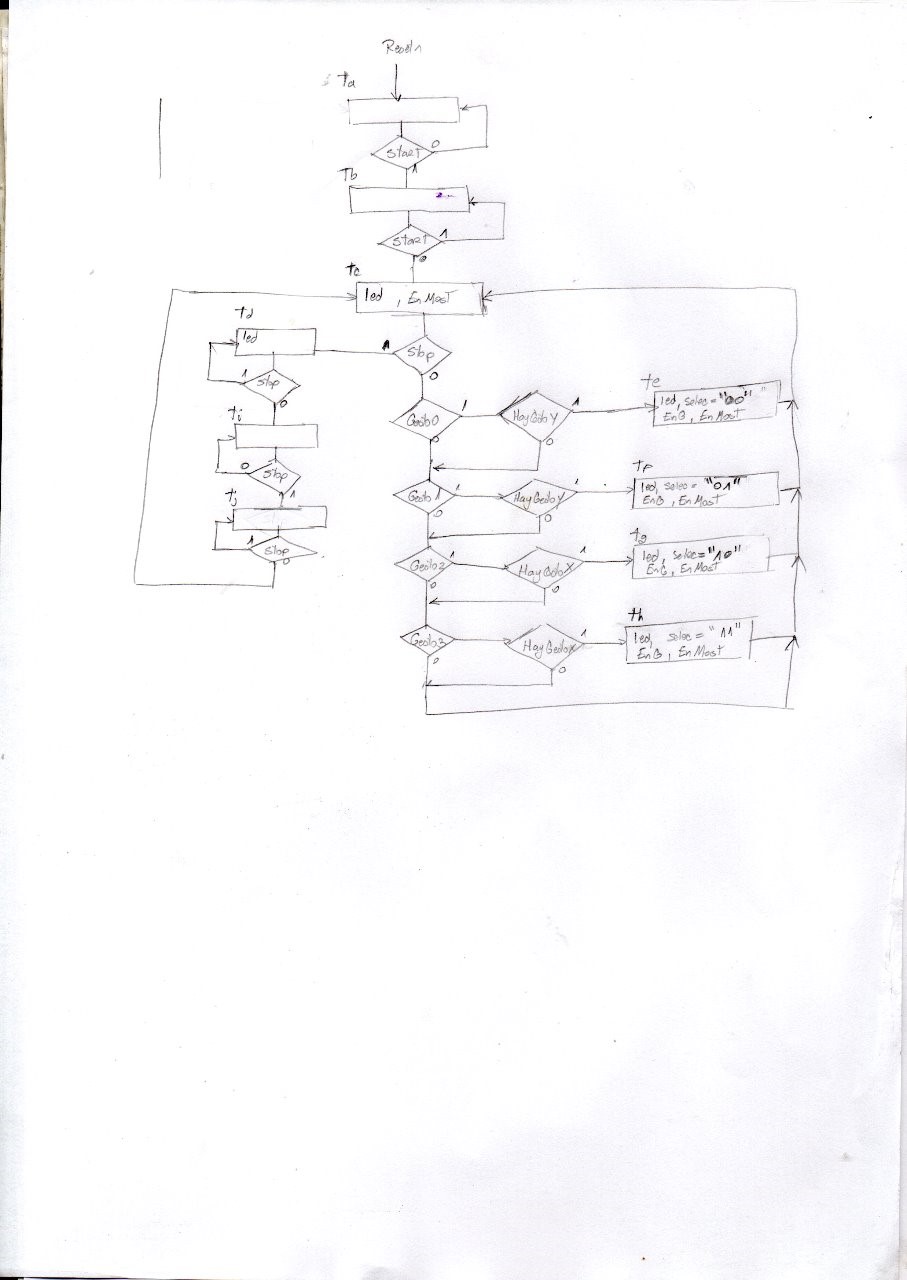 ResetN
ta
start
0
1
tb
start
1
0
tc
led , EnMost
td
led
1
stop
0
stop
1
0
ti
0
stop
1
tj
1
stop
0
Gesto0
1
HayGestoY
1
0
0
te
led, selec = "00"
EnG , EnMost
Gesto1
1
HayGestoY
1
0
0
tf
led, selec = "01"
EnG , EnMost
Gesto2
1
HayGestoX
1
0
0
tg
led, selec = "10"
EnG , EnMost
Gesto3
HayGestoX
1
0
0
th
led, selec = "11"
EnG , EnMost